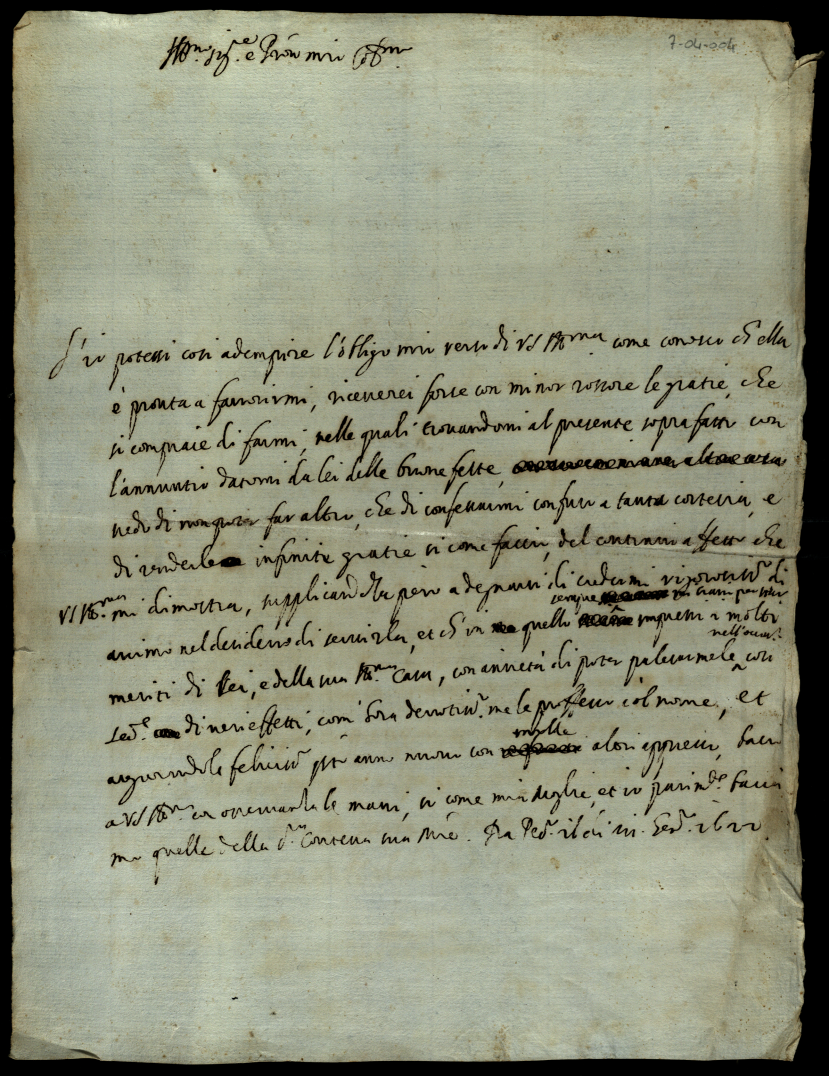 7-04-004
Ill.mo Sig.re e Pron mio Oss.mo
S'io potessi così adempire l'obligo mio verso di VS Ill.ma come conosco ch'ella
è pronta a favorirmi, riceverei forse con minor rossore le gratie, che
si compiace di farmi, nelle quali trovandomi al presente soprafatto con
l'annuntio datomi da lei delle buone feste,
vedo di non poter far altro, che di confessarmi confuso a tanta cortesia, e
di renderle infinite gratie si come faccio, del continuo affetto che
VS Ill.ma mi dimostra, supplicandola però a degnarsi di credermi di
animo nel desiderio di servirla, et ch'in quello sempre impressi i molti
meriti di Lei, e della sua Ill.ma Casa, con ansietà di poter palesarmele con
nell'occas.i
di veri effetti, com'hora devotiss.o me le professo col nome, et
augurandole feliciss.o q.sto anno nuovo con mille altri appresso, bacio
a VS Ill.ma con ogni le mani, si come mia moglie, et io parim.te bacia
mo quelle della S.ra Contessa sua M.re. Da il di